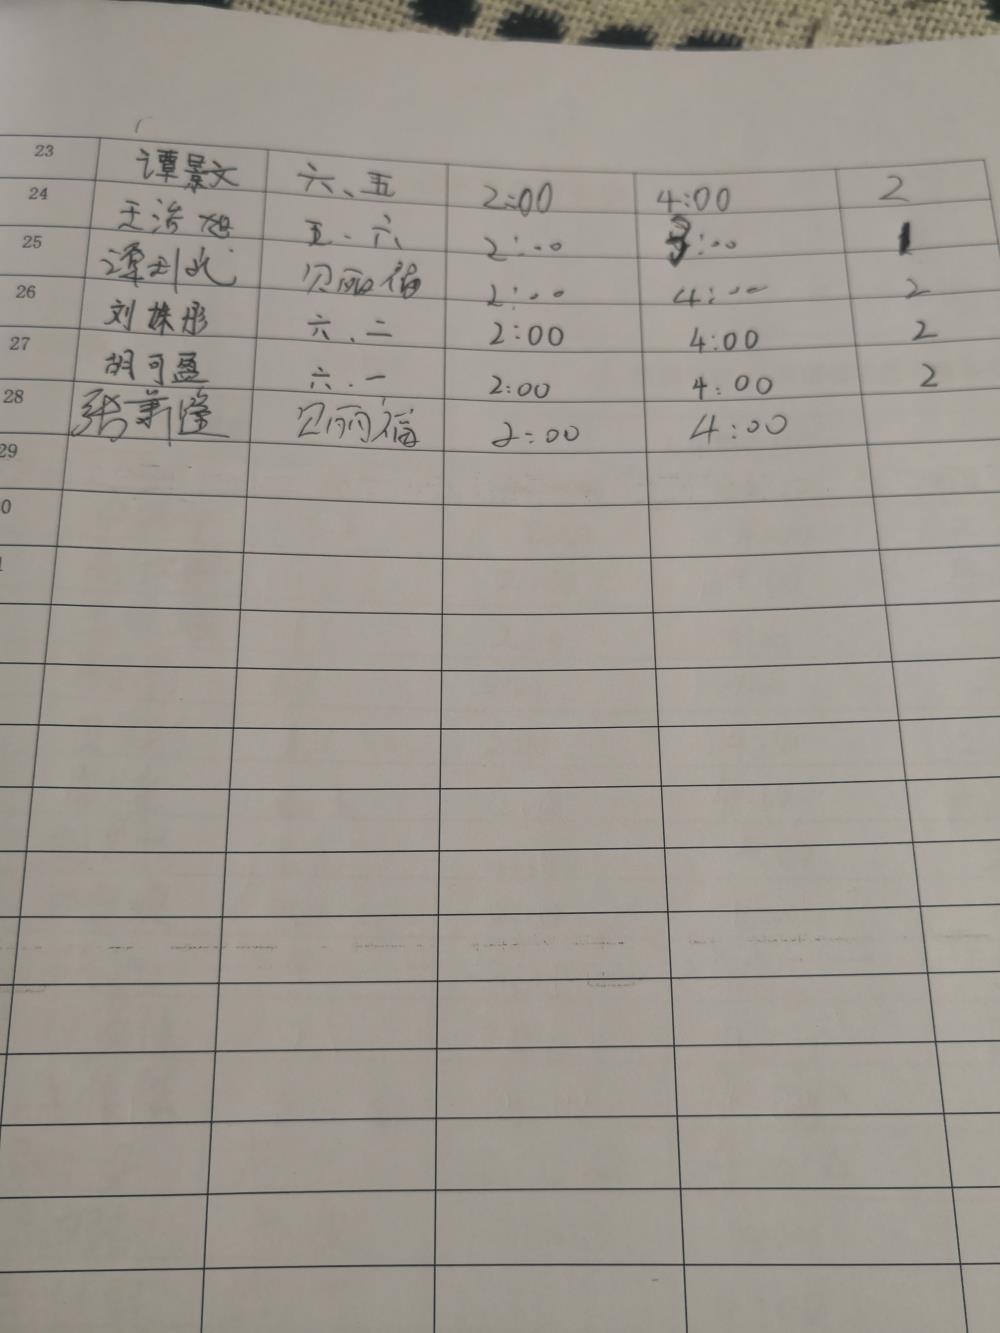 23 谭景文 六、五 2:00 4:00 2
24 王治旭 五.六 2:00 3:00 1
25 谭利 贝丽福 2:00 4:00 2
26 刘姝彤 六.二 2:00 4:00 2
27 胡可盈 六.一 2:00 4:00 2
28 张 隆 贝丽福 2:00 4:00
29
0